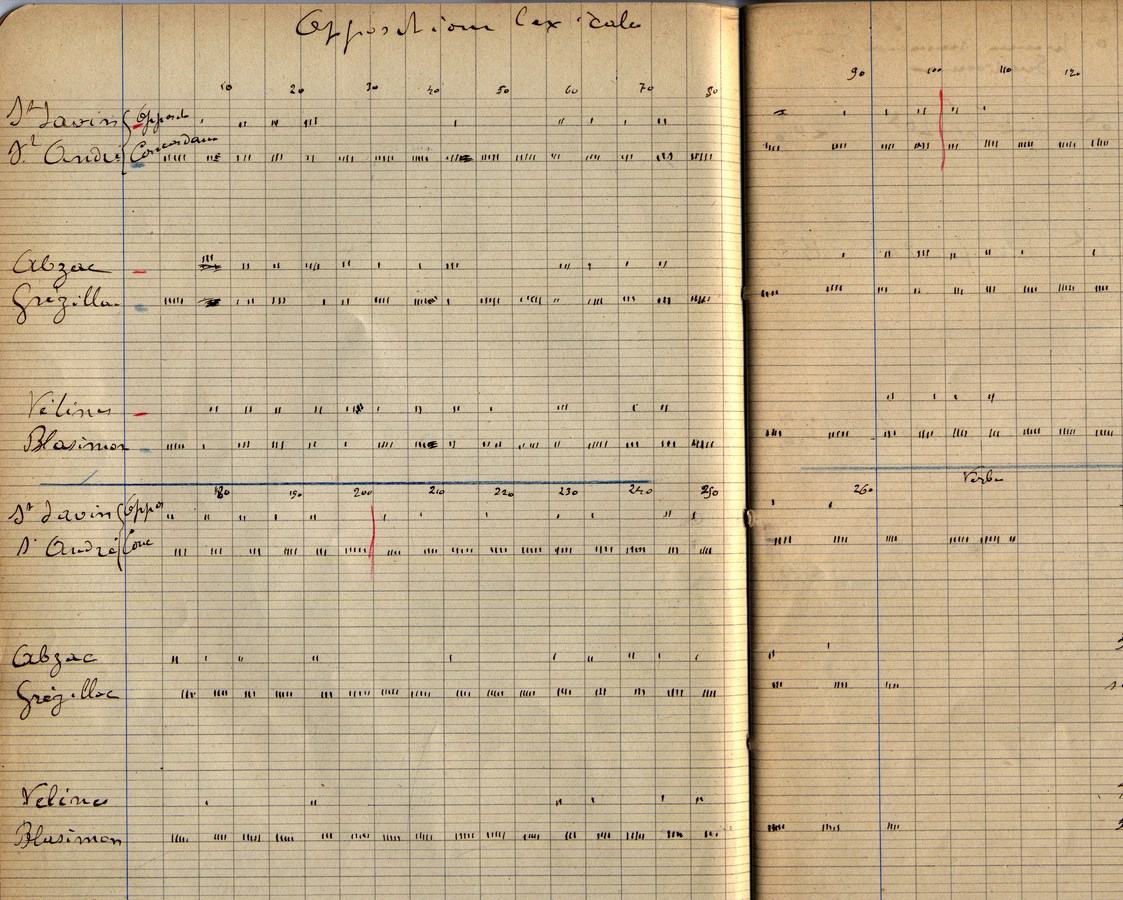 Oppositions lexicales
10 20 30 40 50 60 70 80 90 100 110 120
St Savin Opposit
St André Concordan
Abzac
Grézillac
Vélines
Blasimon
180 190 200 210 220 230 240 250 260 Verbe
St Savin Oppo
St André Conc
Abzac
Grézillac
Velines
Blasimon